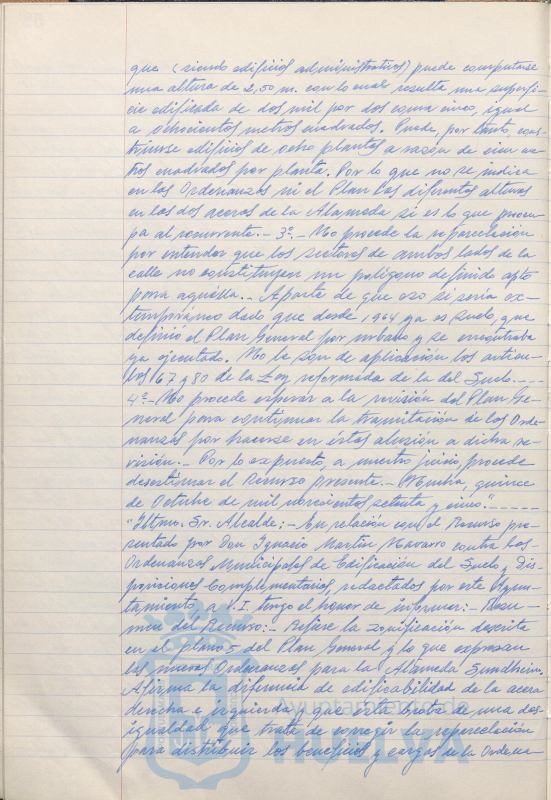 que (siendo edificios administrativos) puede computarse
una altura de 2,50 m. con lo cual resulta una superfi-
cie edificada de dos mil por dos coma cinco, igual
a ochocientos metros cuadrados. Puede, por tanto, cons-
truirse edificios de ocho plantas a razón de cien me-
tros cuadrados por planta. Por lo que no se indica
en las Ordenanzas ni el Plan las diferentes alturas
en las dos aceras de la Alameda si es lo que preocu-
pa al recurrente.- 3º.- No procede la reparcelación
por entender que los sectores de ambos lados de la
calle no constituyen un polígono definido apto
para aquélla.- Aparte de que eso sí sería ex-
temporáneo dado que desde 1964 ya es suelo, que
definió el Plan General por urbano y se encontraba
ya ejecutado. No le son de aplicación los artícu-
los 67 y 80 de la Ley reformada de la del Suelo.----
4º.- No procede esperar a la revisión del Plan Ge-
neral para continuar la tramitación de las Orde-
nanzas por hacerse en éstas alusión a dicha re-
visión.- Por lo expuesto, a nuestro juicio, procede
desestimar el Recurso presente.- Huelva, quince
de Octubre de mil novecientos setenta y cinco."------
"Iltmo. Sr. Alcalde:- En relación con el Recurso pre-
sentado por Don Ignacio Martín Navarro contra las
Ordenanzas Municipales de Edificación del Suelo y Dis-
posiciones Complementarias, redactados por este Ayun-
tamiento, a V.I. tengo el honor de informar:- Resu-
men del Recurso:- Refiere la zonificación descrita
en el plano 5 del Plan General y lo que expresan
las nuevas Ordenanzas para la Alameda Sundheim.
Afirma la diferencia de edificabilidad de la acera
derecha e izquierda y que esta trata de una des-
igualdad, que trata de corregir la reparcelación
para distribuir los beneficios y cargas de la Ordena-
Ayuntamiento de
HUELVA